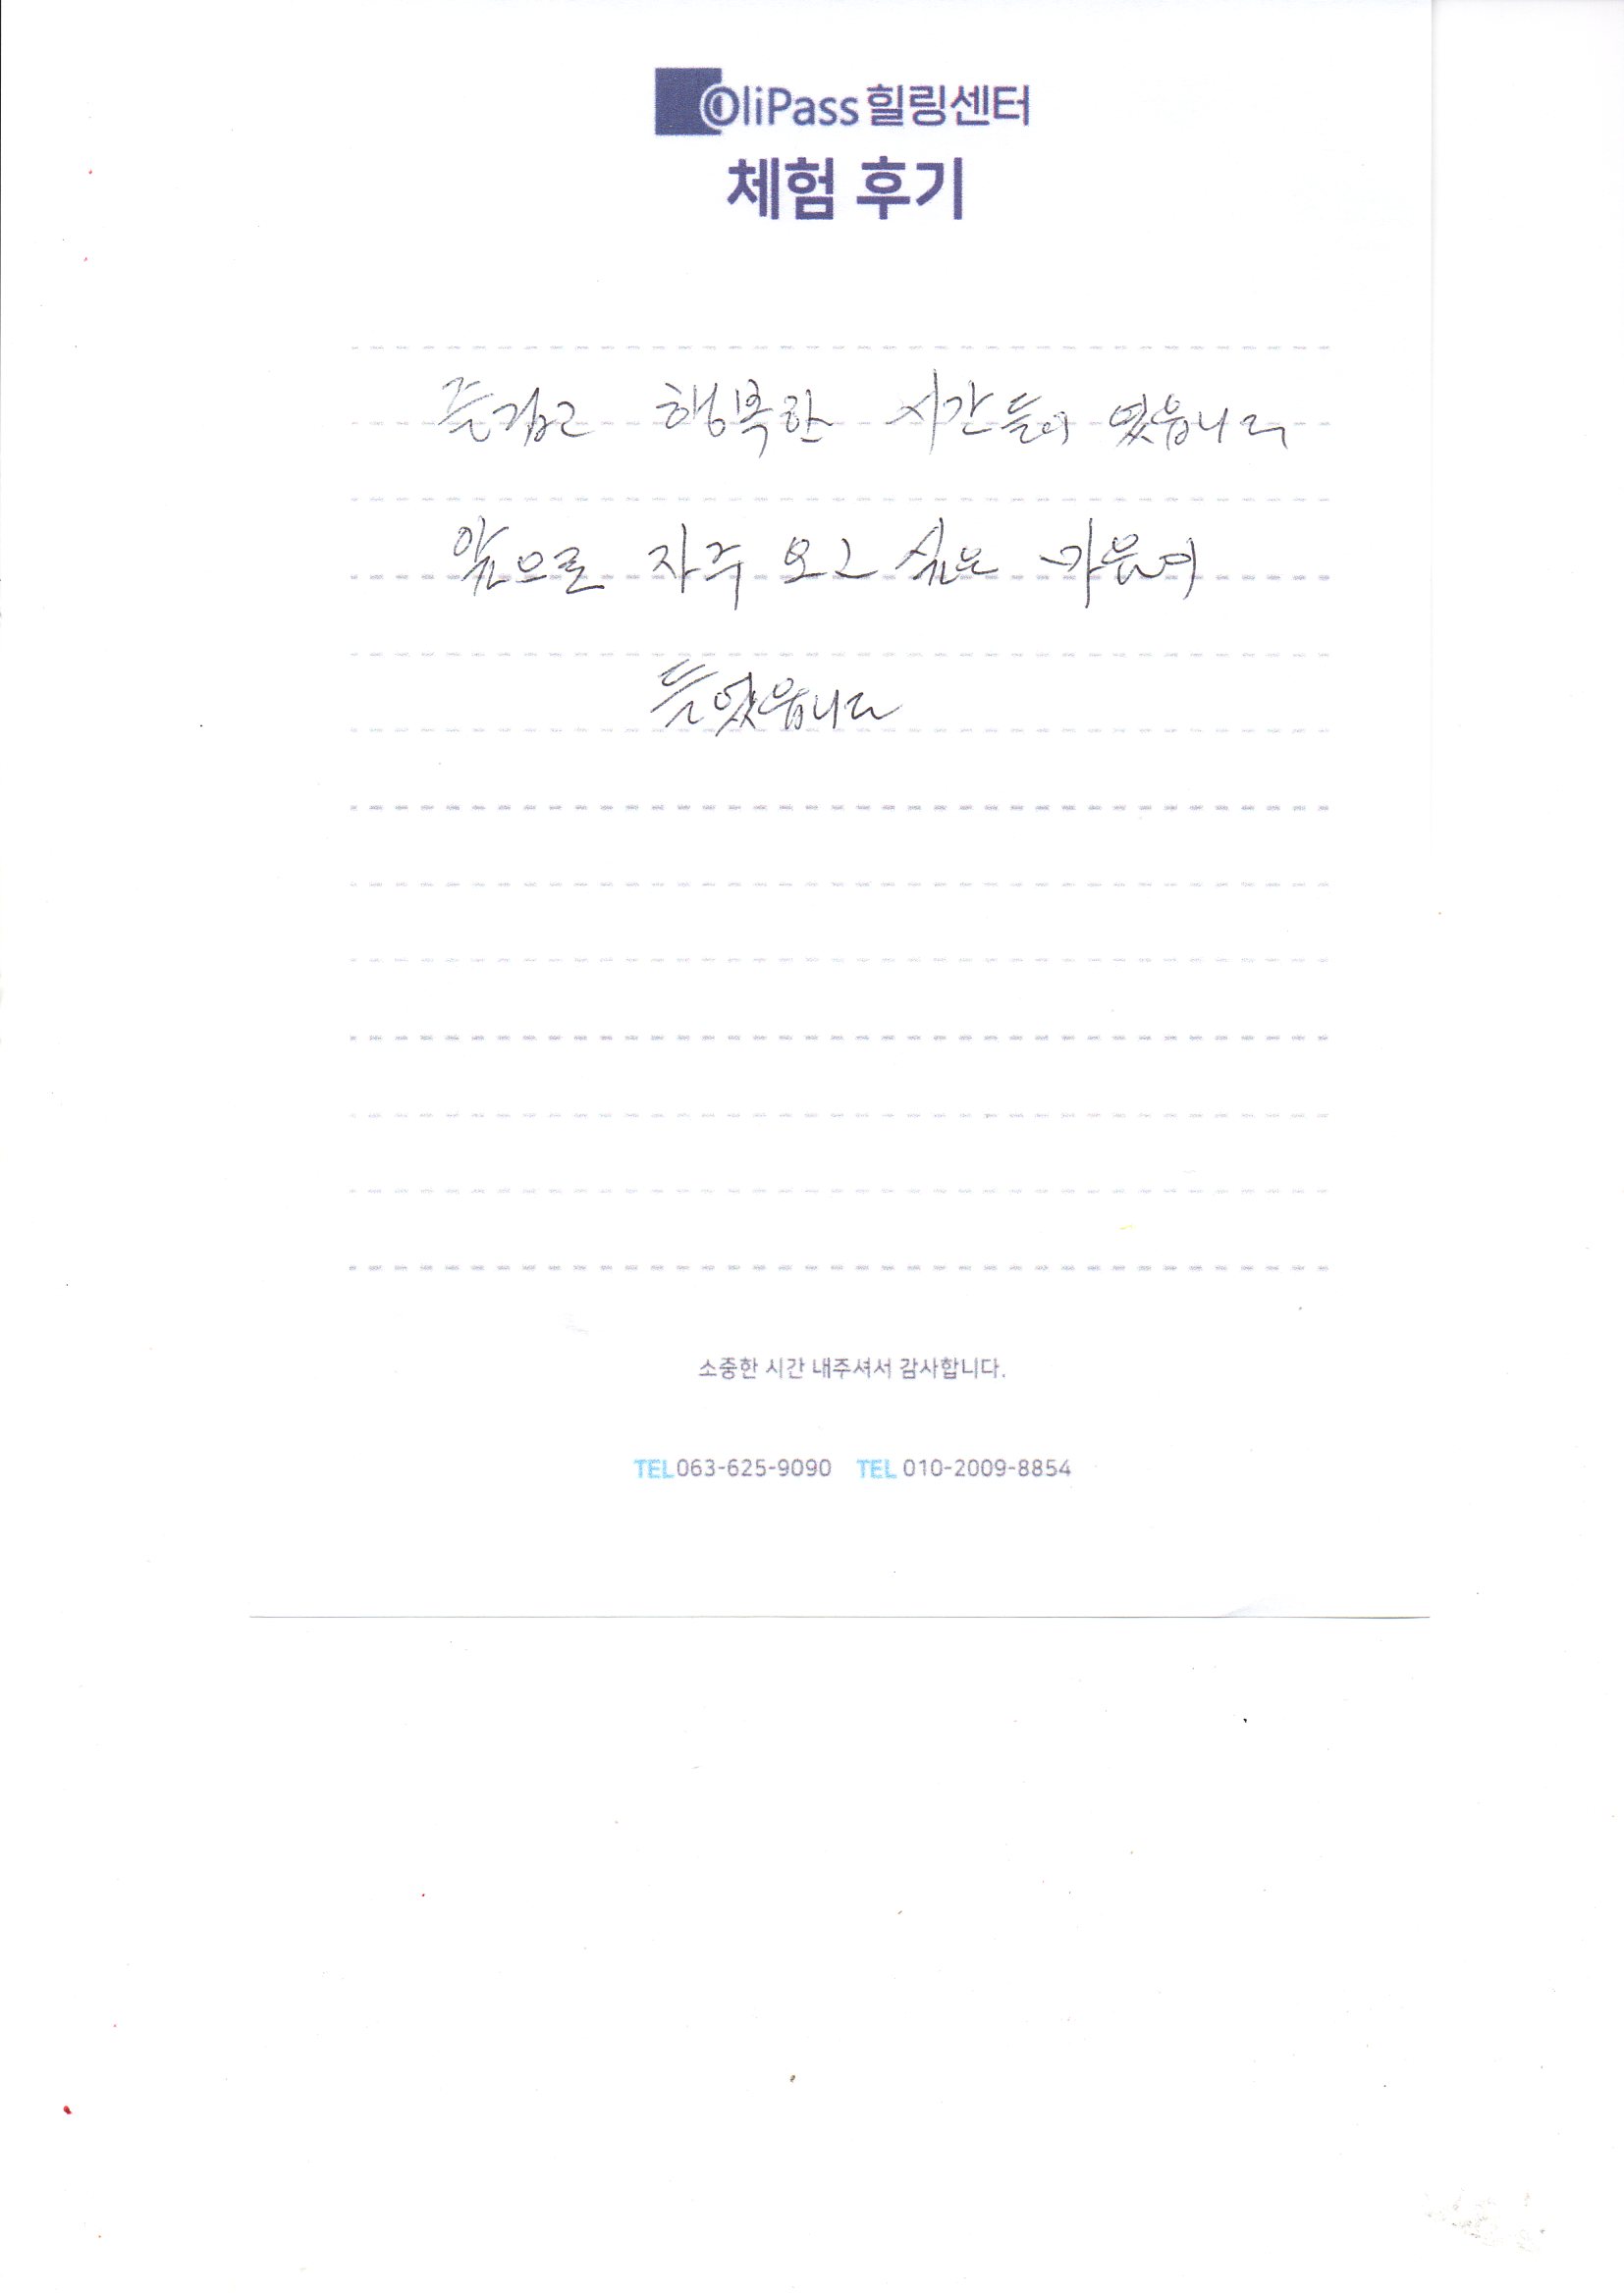 OliPass 힐링센터
체험 후기
즐겁고 행복한 시간들이 였읍니다
앞으로 자주 오고 싶은 마음이
들었읍니다
소중한 시간 내주셔서 감사합니다.
TEL 063-625-9090 TEL 010-2009-8854